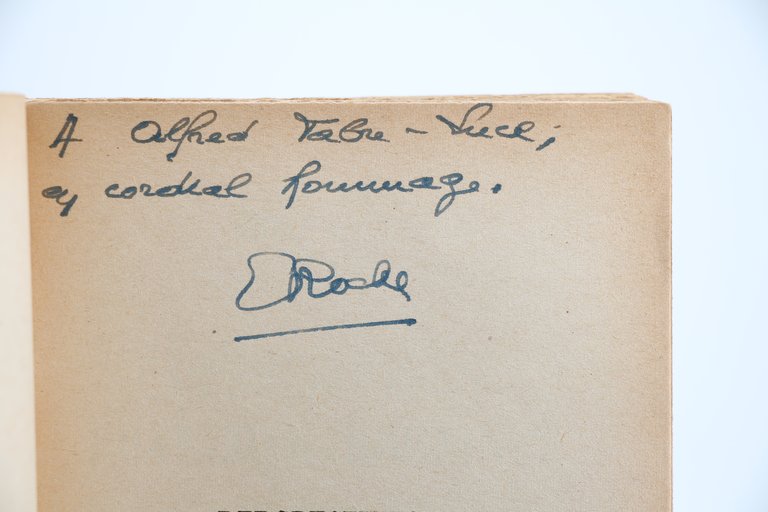 A Alfred Fabre-Luce,
en cordial hommage.
E Roche